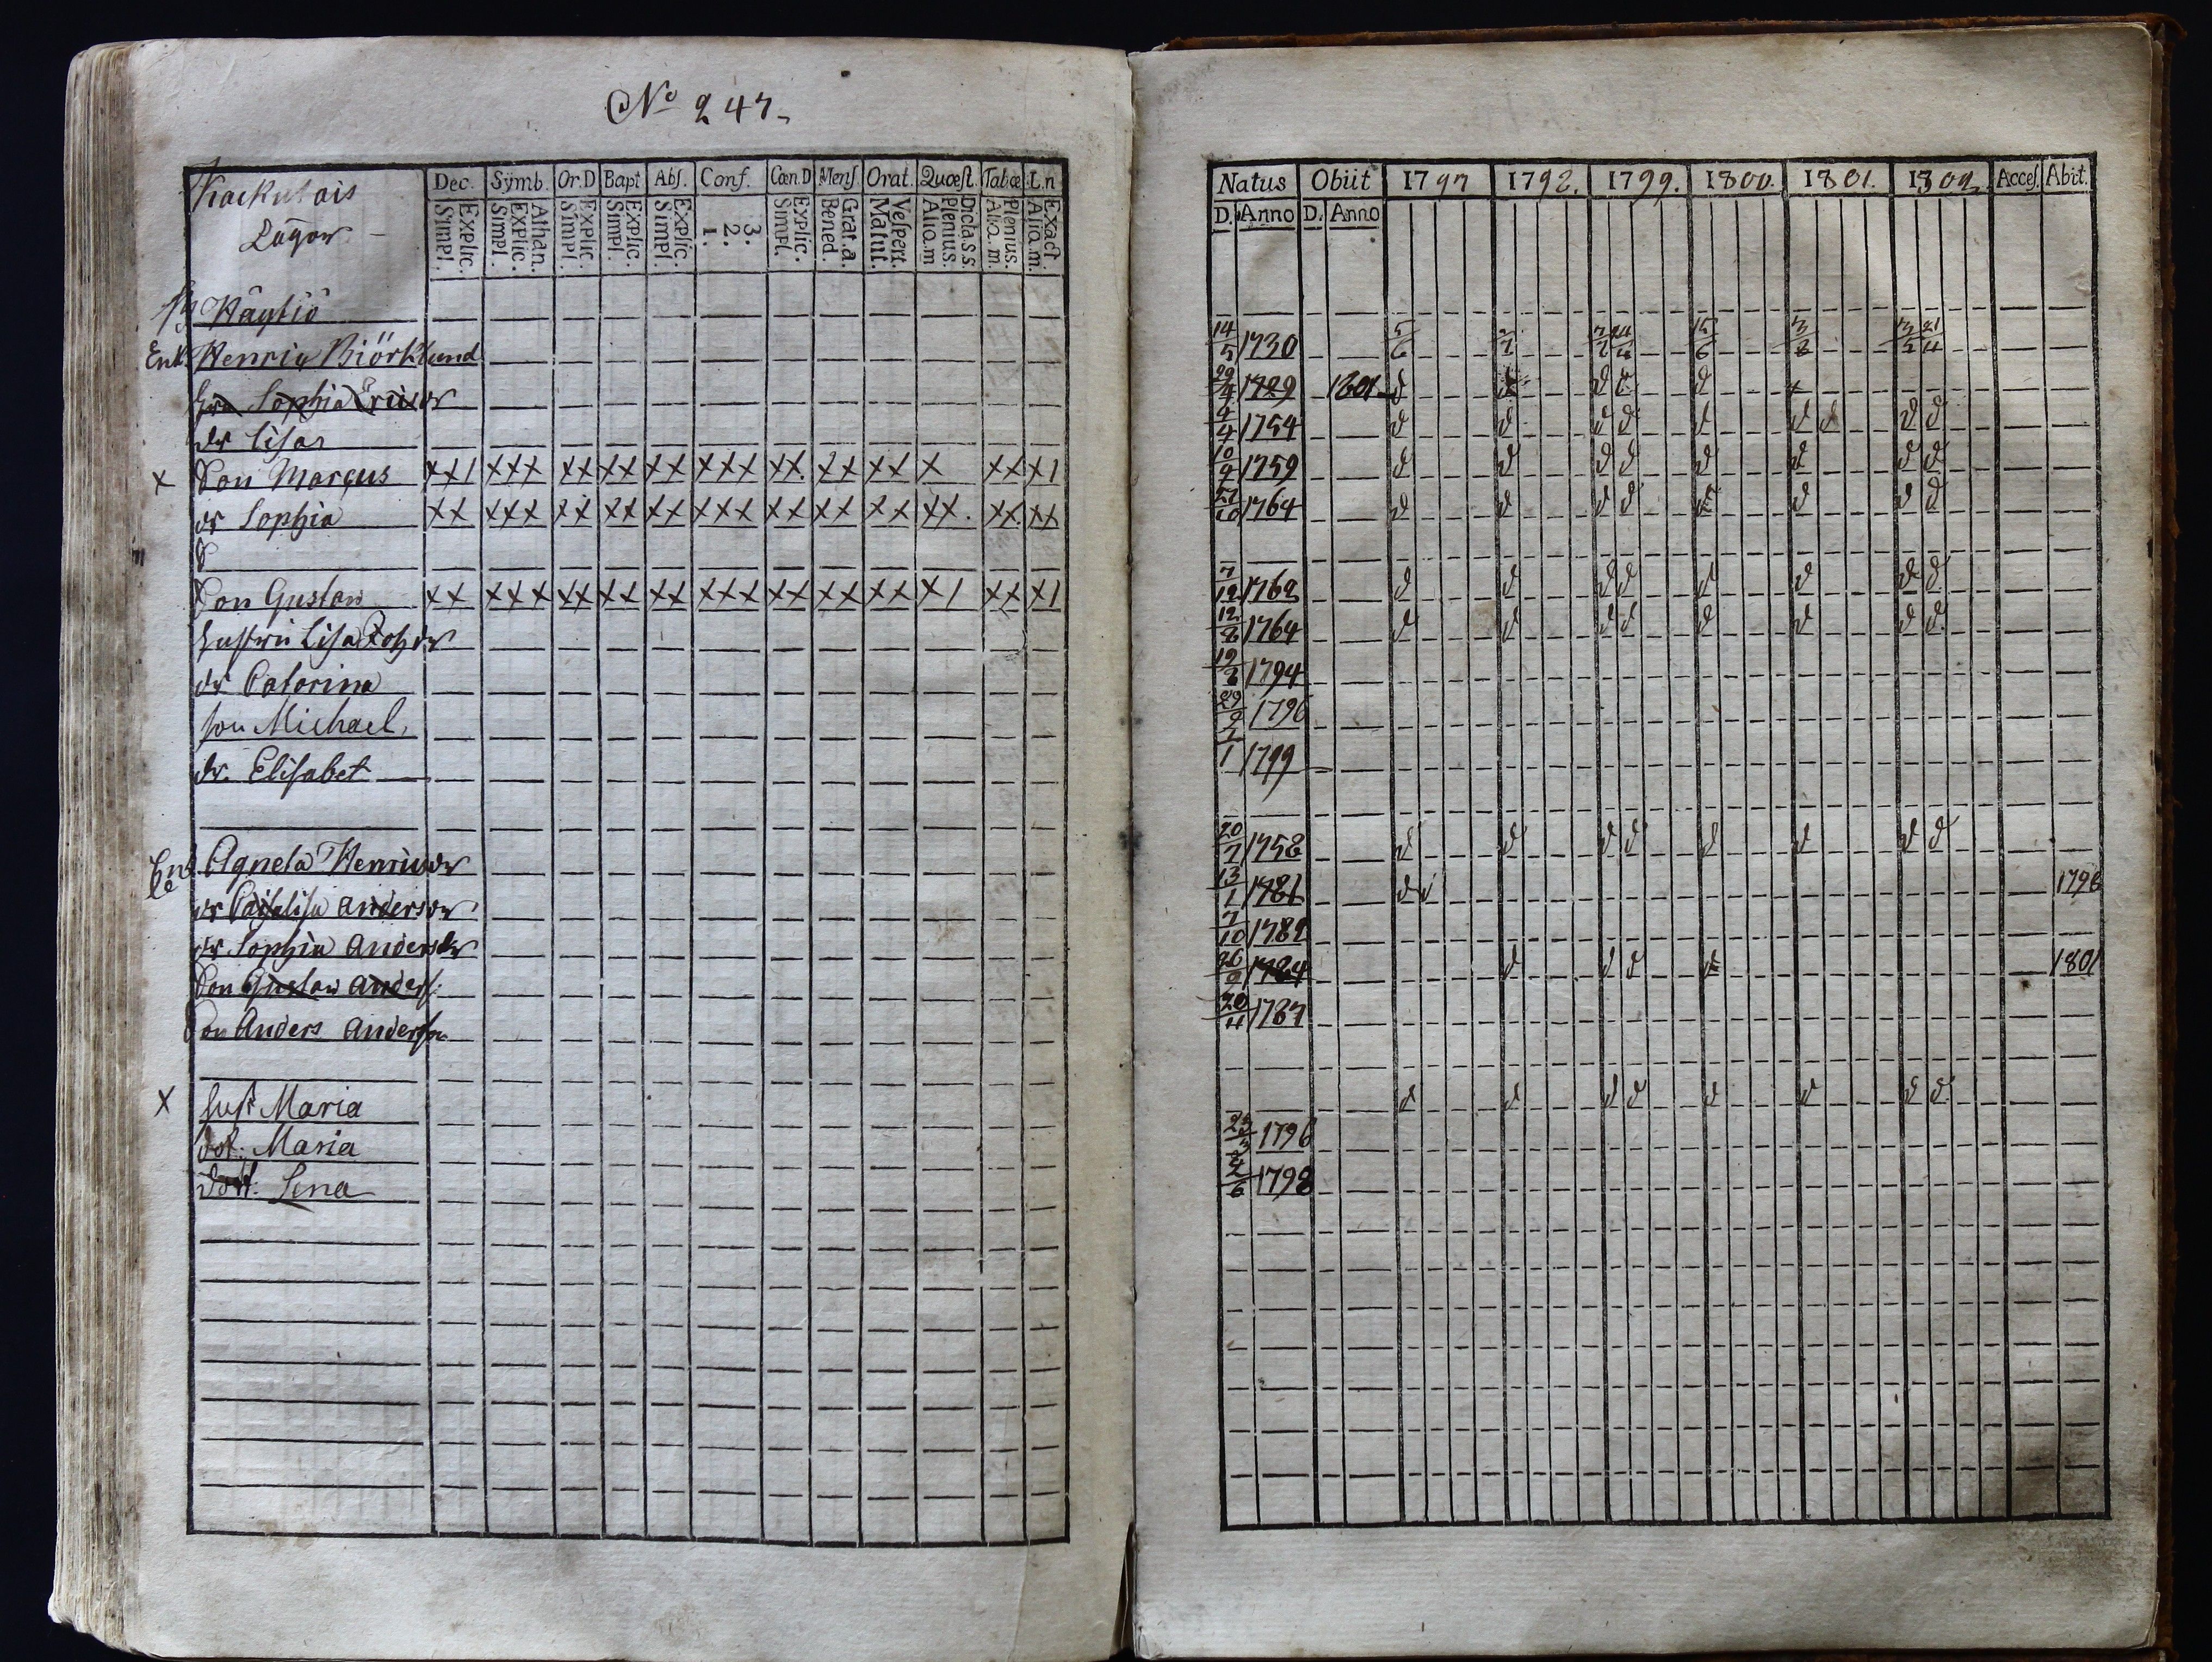 No 247.
Dec. Symb. Or.D Bapt Abſ. Conf. Cœn.D Menſ Orat. Quœſt. Tabœ L.n
Explic. Simpl. Athan. Explic. Simpl. Explic. Simpl. Explic. Simpl. Explic. Simpl. 3. 2. 1. Explic. Simpl. Grat.a. Bened. Veſpert. Matut. Dicta.s.s. Plenius. Alia.m Plenius. Alia.m. Exact. Alia.m.
Häyhiö
Enk. Henric Biörklund
Sophia Ericsdr
dr Lisa
X Son Marcus XX1 XXX XX XX XX XXX XX. XX XX X XX X1
dr Sophia XX XXX XX XX XX XXX XX XX XX XX. XX. XX
Son Gustaw XX XXX XX XX XX XXX XX XX XX X1 XX X1
hustru Lisa
dr Catarina
son Michael,
dr. Elisabet
Agneta Henricsdr
dr Cajsalisa Andersdr
dr Sophia Andersdr
Son Gustaw Anderſ.
Son Anders Anderson
X huſt Maria
dot: Maria
dott. Lena
Natus Obiit 1797 1798. 1799. 1800. 1801. 1802 Acceſ. Abit.
D. Anno D. Anno
14/5 1730 5/6 15/6
29/4 1729 1801 d
4/4 1754 d d d d d d d d d
10/9 1759 d d d d d d d d
27/10 1764 d d d d d d d d
7/12 1762 d d d d d d d d
12/8 1764 d d d d d d d d
19/8 1794
29/9 1796
7/1 1799
20/7 1758 d d d d d d d d
13/1 1781 d d 1798
7/10 1782
26/9 1784 d d d 1801
20/11 1787
d d d d d d d d
25/3 1796
2/6 1798